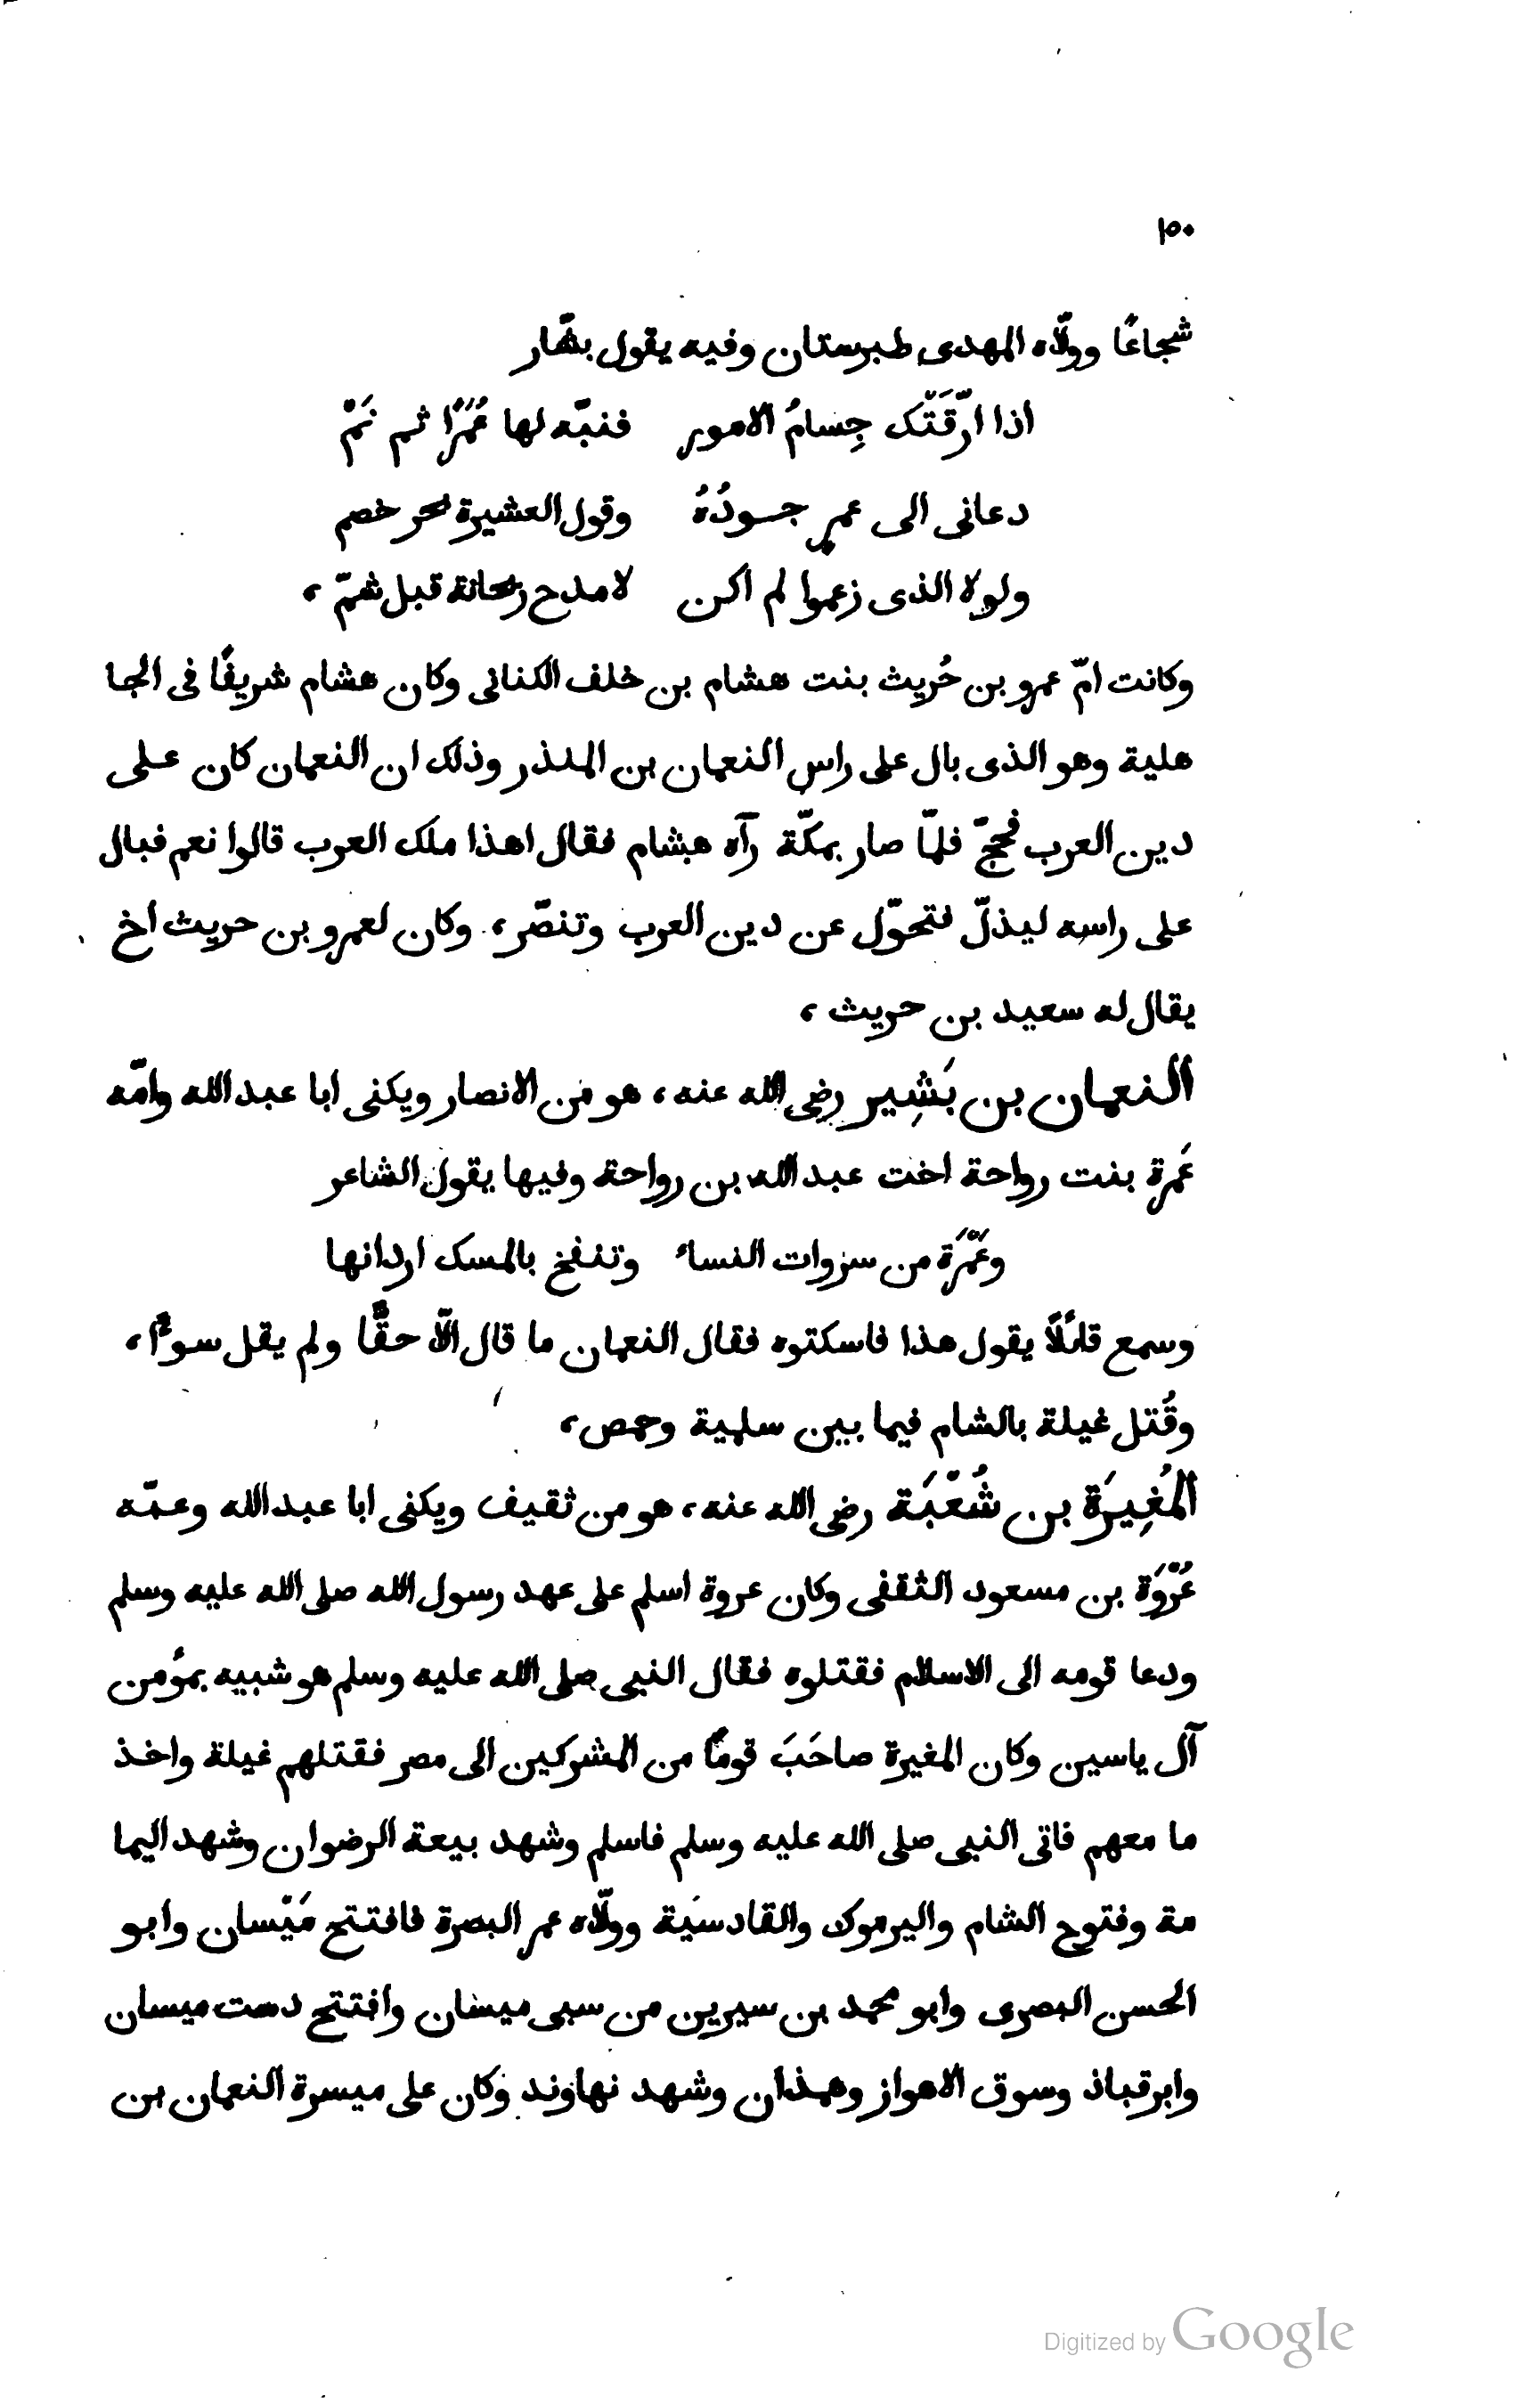 ١٥٠
شجاعًا وولّاه المهدى طبرستان وفيه يقول بشّار
اذا ارّقَتْك جِسامُ الامور فنبّه لها عُمَرًا ثم نَمْ
دعانى الى عمرٍ جودُهُ وقول العشيرة بحر خصم
ولولا الذى زعموا لم اكن لامدح ريحانة قبل شمّ،
وكانت امّ عمرو بن حُريث بنت هشام بن خلف الكنانى وكان هشام شريفًا فى الجا
هلية وهو الذى بال على راس النعمان بن المنذر وذلك ان النعمان كان على
دين العرب فحجّ فلمّا صار بمكّة رآه هشام فقال اهذا ملك العرب قالوا نعم فبال
على راسه ليذلّ فتحوّل عن دين العرب وتنصّر، وكان لعمرو بن حريث اخ
يقال له سعيد بن حريث،
النعمان بن بَشِير رضى الله عنه، هو من الانصار ويكنى ابا عبد الله وامّه
عَمرة بنت رواحة اخت عبد الله بن رواحة وفيها يقول الشاعر
وعَمْرَة من سروات النساء وتنفخ بالمسك اردانها
وسمع قائلًا يقول هذا فاسكتوه فقال النعمان ما قال الّا حقًّا ولم يقل سوءًا،
وقُتل غيلة بالشام فيما بين سلمية وحمص،
المُغِيرَة بن شُعْبَة رضى الله عنه، هو من ثقيف ويكنى ابا عبد الله وعمّه
عُرْوَة بن مسعود الثقفى وكان عروة اسلم على عهد رسول الله صلى الله عليه وسلم
ودعا قومه الى الاسلام فقتلوه فقال النبى صلى الله عليه وسلم هو شبيه بمؤمن
آل ياسين وكان المغيرة صاحَبَ قومًا من المشركين الى مصر فقتلهم غيلة واخذ
ما معهم فاتى النبى صلى الله عليه وسلم فاسلم وشهد بيعة الرضوان وشهد اليما
مة وفتوح الشام واليرموك والقادسيّة وولّاه عمر البصرة فافتتح مَيْسان وابو
الحسن البصرى وابو محمد بن سيرين من سبى ميسان وافتتح دست ميسان
وابرقباذ وسوق الاهواز وهمذان وشهد نهاوند وكان على ميسرة النعمان بن
Digitized by Google